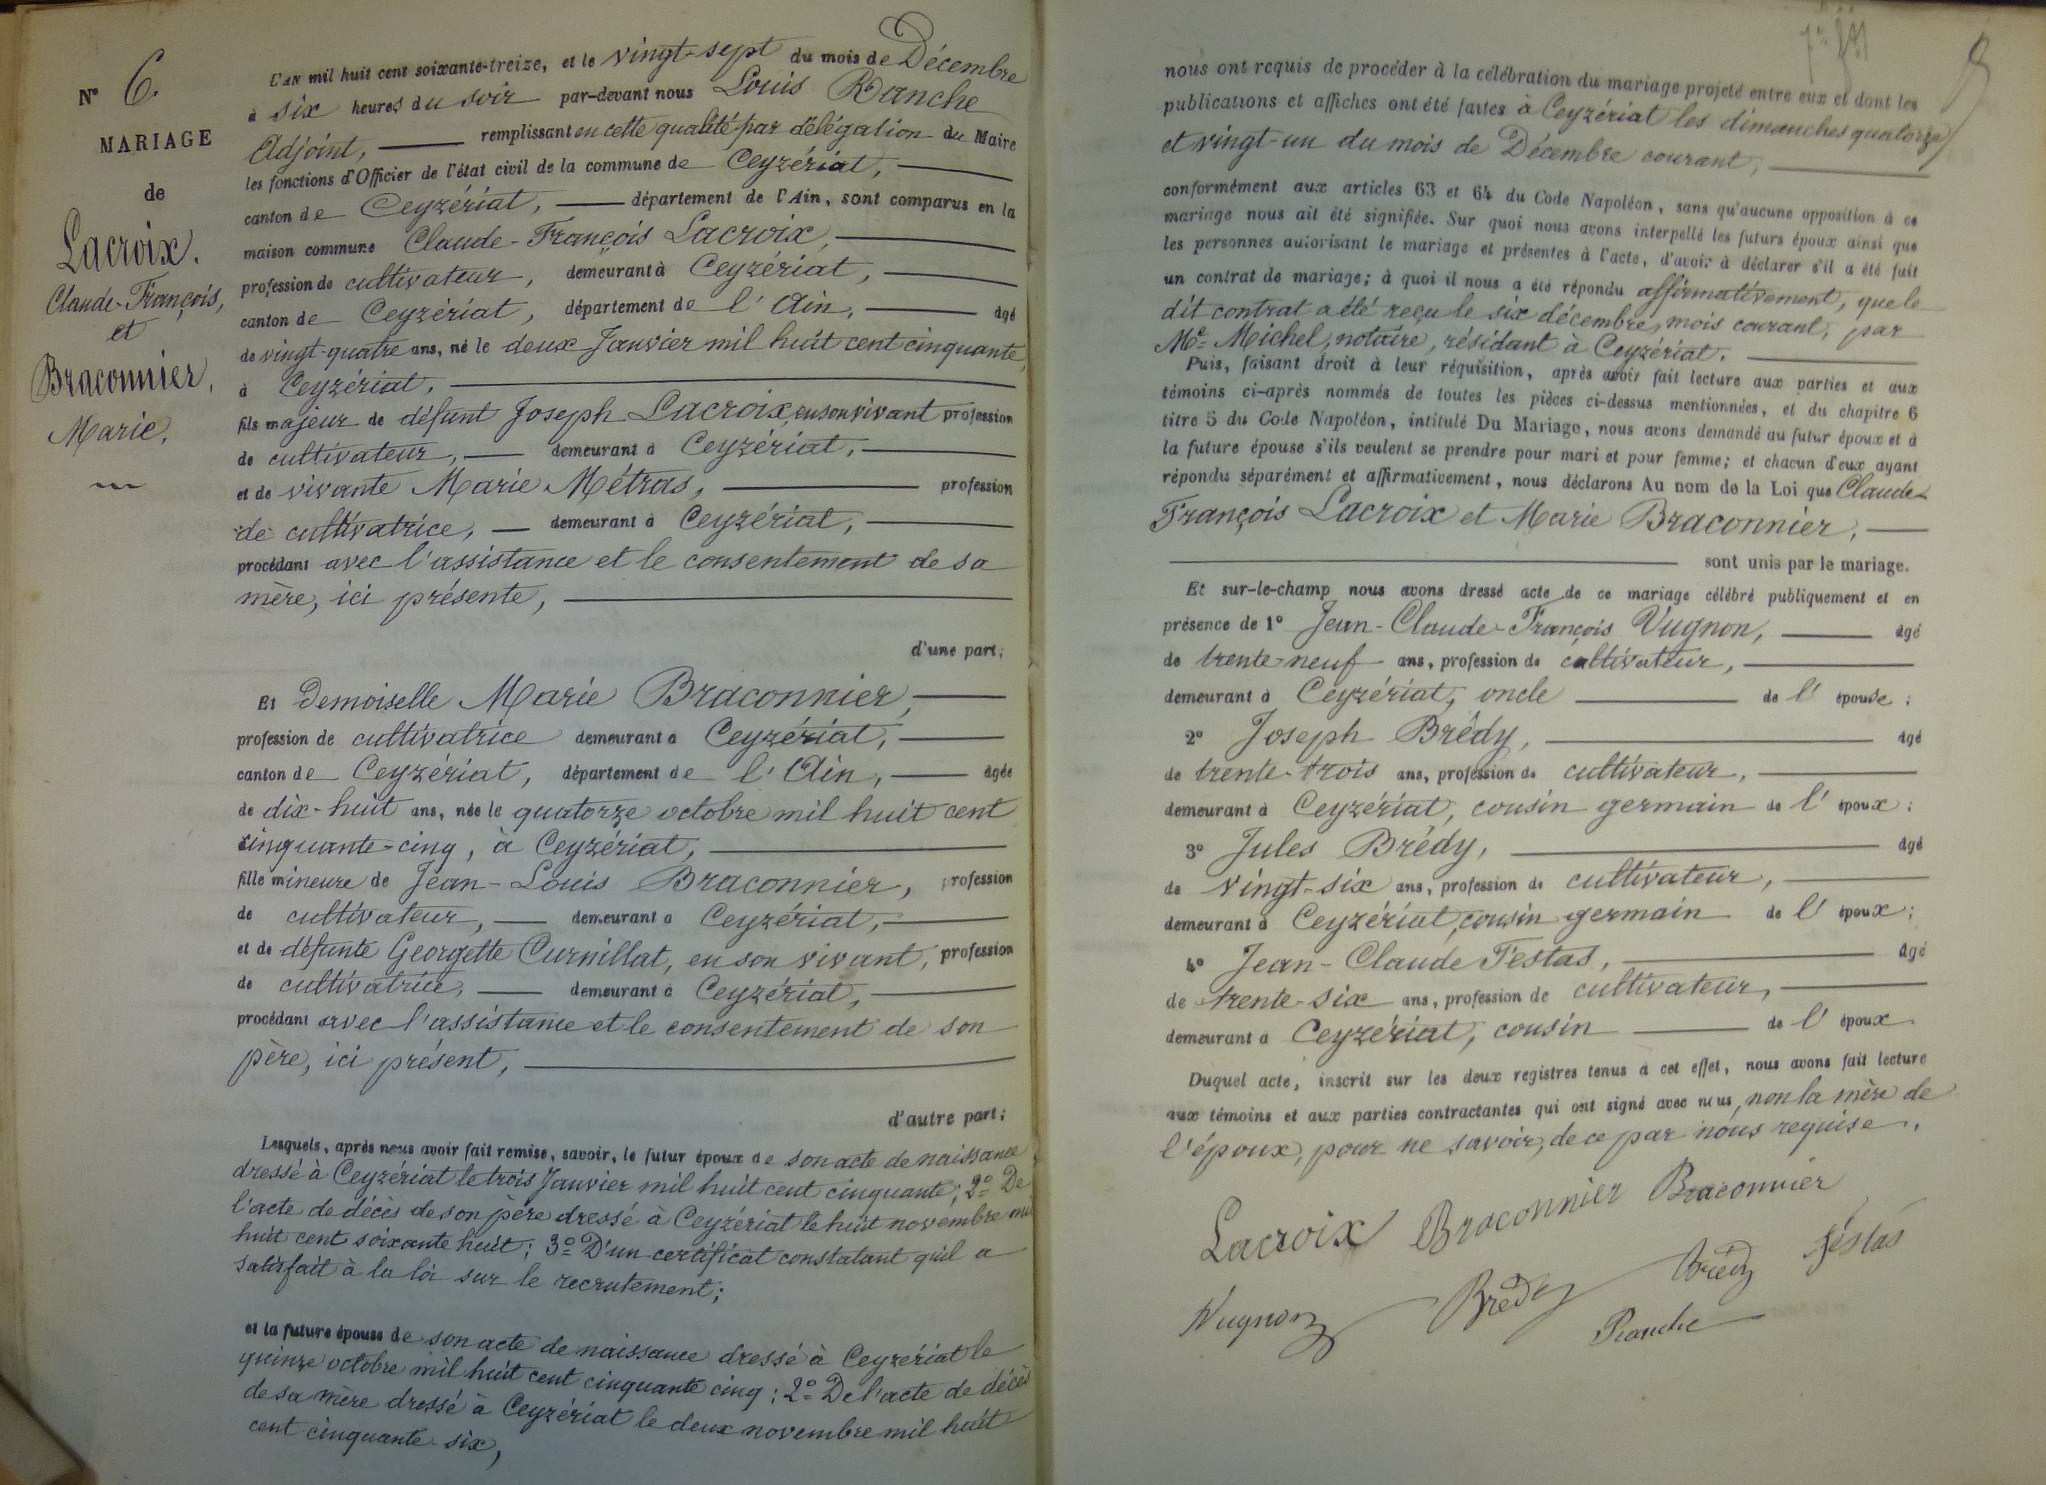 N° 6.
MARIAGE
de
Lacroix.
Claude-François,
et
Braconnier,
Marie.
L'AN mil huit cent soixante-treize, et le vingt-sept du mois de Décembre
à six heures du soir par-devant nous Louis Ranche
Adjoint, remplissant en cette qualité par délégation du Maire
les fonctions d'Officier de l'état civil de la commune de Ceyzériat,
canton de Ceyzériat, département de l'Ain, sont comparus en la
maison commune Claude-François Lacroix,
profession de cultivateur, demeurant à Ceyzériat,
canton de Ceyzériat, département de l'Ain, âgé
de vingt-quatre ans, né le deux Janvier mil huit cent cinquante,
à Ceyzériat,
fils majeur de défunt Joseph Lacroix, en son vivant profession
de cultivateur, demeurant à Ceyzériat,
et de vivante Marie Métras, profession
de cultivatrice, demeurant à Ceyzériat,
procédant avec l'assistance et le consentement de sa
mère, ici présente,
d'une part;
Et Demoiselle Marie Braconnier,
profession de cultivatrice demeurant à Ceyzériat,
canton de Ceyzériat, département de l'Ain, âgée
de dix-huit ans, née le quatorze octobre mil huit cent
cinquante-cinq, à Ceyzériat,
fille mineure de Jean-Louis Braconnier, profession
de cultivateur, demeurant à Ceyzériat,
et de défunte Georgette Curnillat, en son vivant, profession
de cultivatrice, demeurant à Ceyzériat,
procédant avec l'assistance et le consentement de son
père, ici présent,
d'autre part;
Lesquels, après nous avoir fait remise, savoir, le futur époux de son acte de naissance
dressé à Ceyzériat le trois Janvier mil huit cent cinquante; 2° De
l'acte de décès de son père dressé à Ceyzériat le huit novembre mil
huit cent soixante huit; 3° D'un certificat constatant qu'il a
satisfait à la loi sur le recrutement;
et la future épouse de son acte de naissance dressé à Ceyzériat le
quinze octobre mil huit cent cinquante cinq; 2° De l'acte de décès
de sa mère dressé à Ceyzériat le deux novembre mil huit
cent cinquante six,
nous ont requis de procéder à la célébration du mariage projeté entre eux et dont les
publications et affiches ont été faites à Ceyzériat les dimanches quatorze
et vingt-un du mois de Décembre courant,
conformément aux articles 63 et 64 du Code Napoléon, sans qu'aucune opposition à ce
mariage nous ait été signifiée. Sur quoi nous avons interpellé les futurs époux ainsi que
les personnes autorisant le mariage et présentes à l'acte, d'avoir à déclarer s'il a été fait
un contrat de mariage; à quoi il nous a été répondu affirmativement, que le
dit contrat a été reçu le six décembre, mois courant, par
Me Michel, notaire, résidant à Ceyzériat.
Puis, faisant droit à leur réquisition, après avoir fait lecture aux parties et aux
témoins ci-après nommés de toutes les pièces ci-dessus mentionnées, et du chapitre 6
titre 5 du Code Napoléon, intitulé Du Mariage, nous avons demandé au futur époux et à
la future épouse s'ils veulent se prendre pour mari et pour femme; et chacun d'eux ayant
répondu séparément et affirmativement, nous déclarons Au nom de la Loi que Claude-
François Lacroix et Marie Braconnier,
sont unis par le mariage.
Et sur-le-champ nous avons dressé acte de ce mariage célébré publiquement et en
présence de 1° Jean-Claude-François Vugnon, âgé
de trente-neuf ans, profession de cultivateur,
demeurant à Ceyzériat, oncle de l'épouse;
2° Joseph Brédy, âgé
de trente-trois ans, profession de cultivateur,
demeurant à Ceyzériat, cousin germain de l'époux;
3° Jules Brédy, âgé
de vingt-six ans, profession de cultivateur,
demeurant à Ceyzériat, cousin germain de l'époux;
4° Jean-Claude Festas, âgé
de trente-six ans, profession de cultivateur,
demeurant à Ceyzériat, cousin de l'époux
Duquel acte, inscrit sur les deux registres tenus à cet effet, nous avons fait lecture
aux témoins et aux parties contractantes qui ont signé avec nous, non la mère de
l'époux, pour ne savoir, de ce par nous requise.
Lacroix Braconnier Braconnier
Vugnon Brédy Brédy festas
Ranche